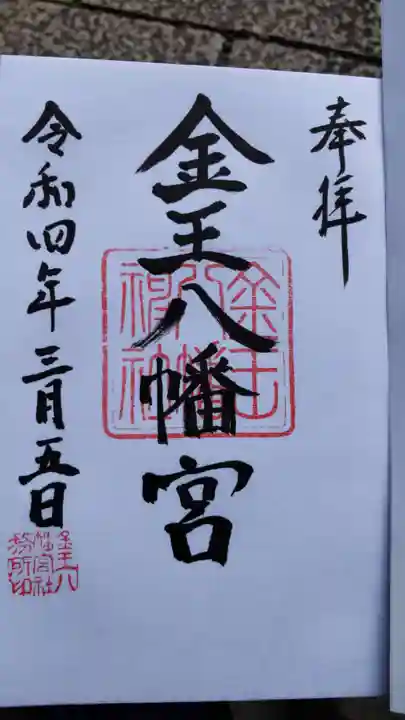 奉拝
金王八幡宮
令和四年三月五日
金王八幡神社
金王八幡宮社務所印